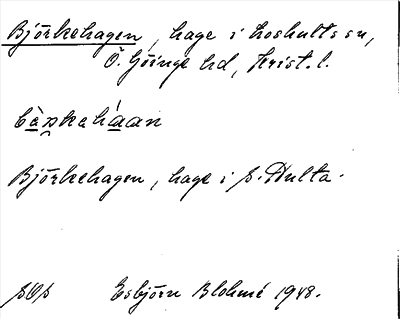 Björkehagen, hage i Loshults sn,
Ö. Göinge hd, Krist. l.
Björkehagen, hage i S. Hulta.
Esbjörn Blohmé 1948.